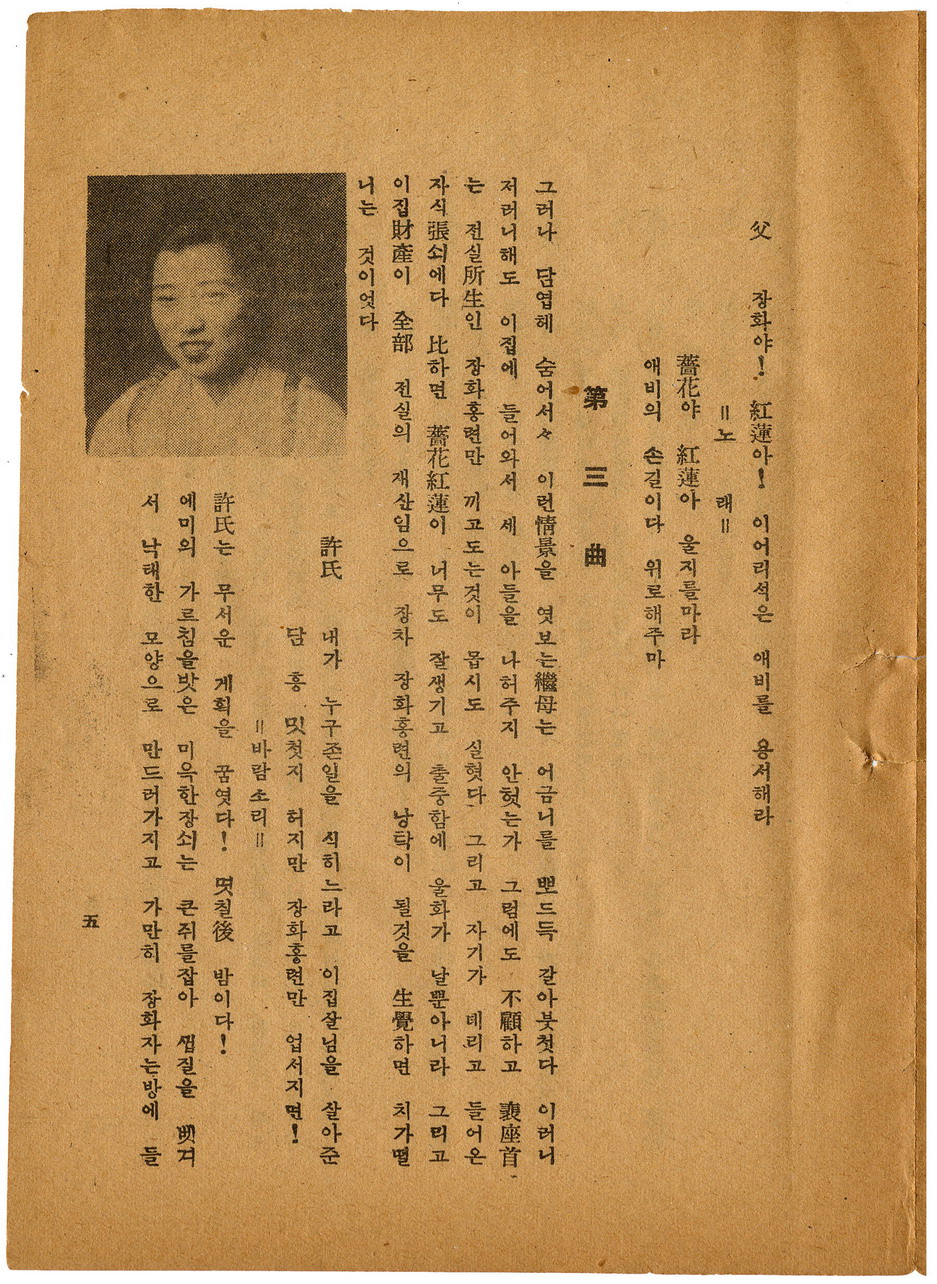 父 장화야! 紅蓮아! 이어리석은 애비를 용서해라
=노 래=
薔花야 紅蓮아 울지를마라
애비의 손길이다 위로해주마
第三曲
그러나 담엽헤 숨어서々 이런情景을 엿보는繼母는 어금니를 뽀드득 갈아붓첫다 이러니
저러니해도 이집에 들어와서 세 아들을 나허주지 안헛는가 그럼에도 不顧하고 裵座首
는 전실所生인 장화홍련만 끼고도는것이 몹시도 실혓다 그리고 자기가 데리고 들어온
자식張쇠에다 比하면 薔花紅蓮이 너무도 잘생기고 출중함에 울화가 날뿐아니라 그리고
이집財產이 全部 전실의 재산임으로 장차 장화홍련의 낭탁이 될것을 生覺하면 치가떨
니는 것이엇다
許氏 내가 누구존일을 식히느라고 이집살님을 살아준
담 흥 밋첫지 허지만 장화홍련만 업서지면!
=바람소리=
許氏는 무서운 계획을 꿈엿다! 몃칠後 밤이다!
에미의 가르침을밧은 미욱한장쇠는 큰쥐를잡아 껍질을 벳겨
서 낙태한 모양으로 만드러가지고 가만히 장화자는방에 들
五